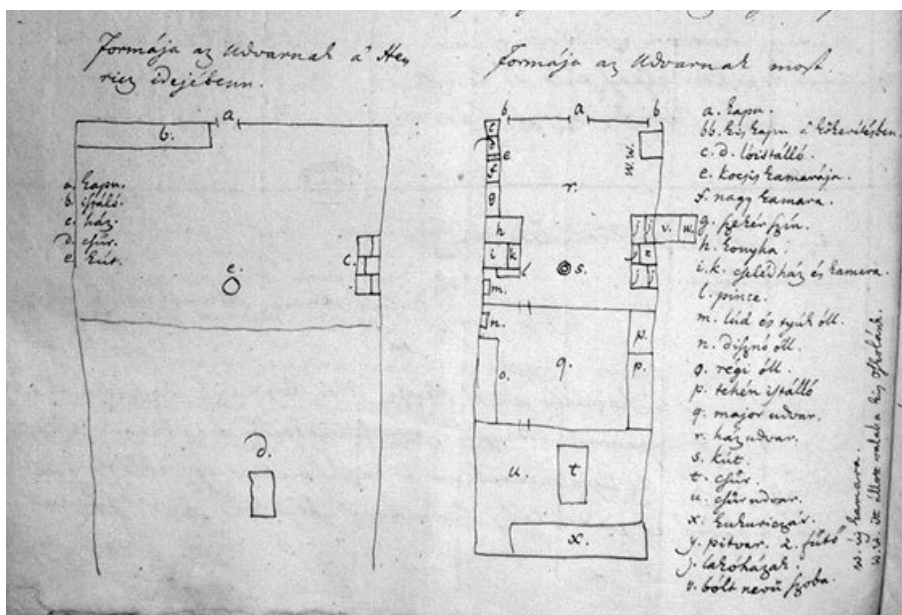 Formája az Udvarnak à Hen
ricz idejébenn.
a
b.
a. kapu.
b. istáló.
c. ház.
d. csűr.
e. kút.
c.
e.
d.
Formája az Udvarnak most
b a b
c
d
e
f
g
h
i k
l
m.
n.
o.
r.
w.w.
j j v. w.
z
j j
s.
p.
p.
q.
u
t
x.
a. kapu.
bb. kis kapu à kőkerítésben.
c. d. lóistálló.
e. kocsis kamarája.
f. nagy kamara.
g. szekér szín.
h. konyha.
i. k. cselédház és kamara.
l. pince.
m. lúd és tyúk óll.
n. disznó óll.
o. régi óll.
p. tehén istálló
q. major udvar.
r. ház udvar.
s. kút.
t. csűr.
u. csűr udvar.
x. kukuriczás.
y. pitvar. 2. fűtő
j. lakóházak.
v. bólt nevű szoba.
w. új kamara.
w.w. itt állott valaha kis oskolánk.